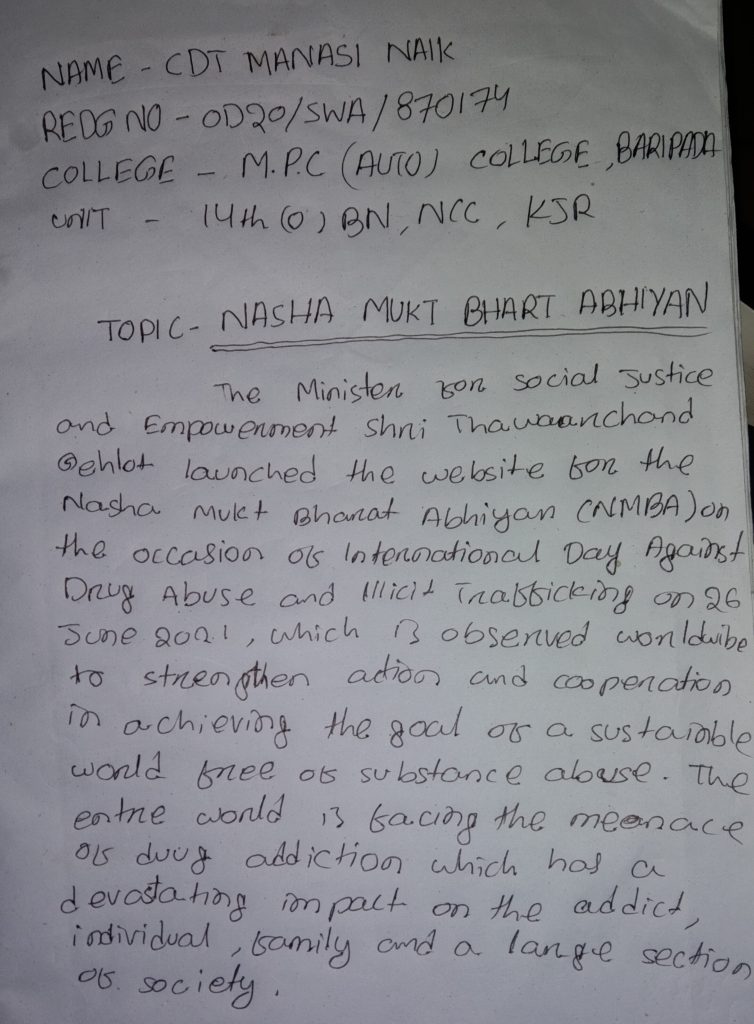 NAME - CDT MANASI NAIK
REDG NO - OD20/SWA/870174
COLLEGE - M.P.C (AUTO) COLLEGE, BARIPADA
UNIT - 14th (O) BN, NCC, KJR
TOPIC- NASHA MUKT BHART ABHIYAN
The Minister for social Justice
and Empowerment Shri Thawaanchand
Gehlot launched the website for the
Nasha Mukt Bharat Abhiyan (NMBA) on
the occasion of International Day Against
Drug Abuse and Illicit Trafficking on 26
June 2021, which is observed worldwibe
to strengthen action and cooperation
in achieving the goal of a sustainble
world free of substance abuse. The
entre world is facing the meanace
of duug addiction which has a
devastating impact on the addict,
individual, family and a large section
of society.